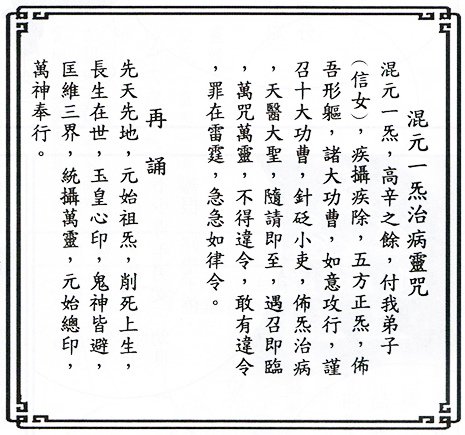 混元一炁治病靈咒
混元一炁，高辛之餘，付我弟子
（信女），疾攝疾除，五方正炁，佈
吾形軀，諸大功曹，如意攻行，謹
召十大功曹，針砭小吏，佈炁治病
，天醫大聖，隨請即至，遇召即臨
，萬咒萬靈，不得違令，敢有違令
，罪在雷霆，急急如律令。
再誦
先天先地，元始祖炁，削死上生，
長生在世，玉皇心印，鬼神皆避，
匡維三界，統攝萬靈，元始總印，
萬神奉行。